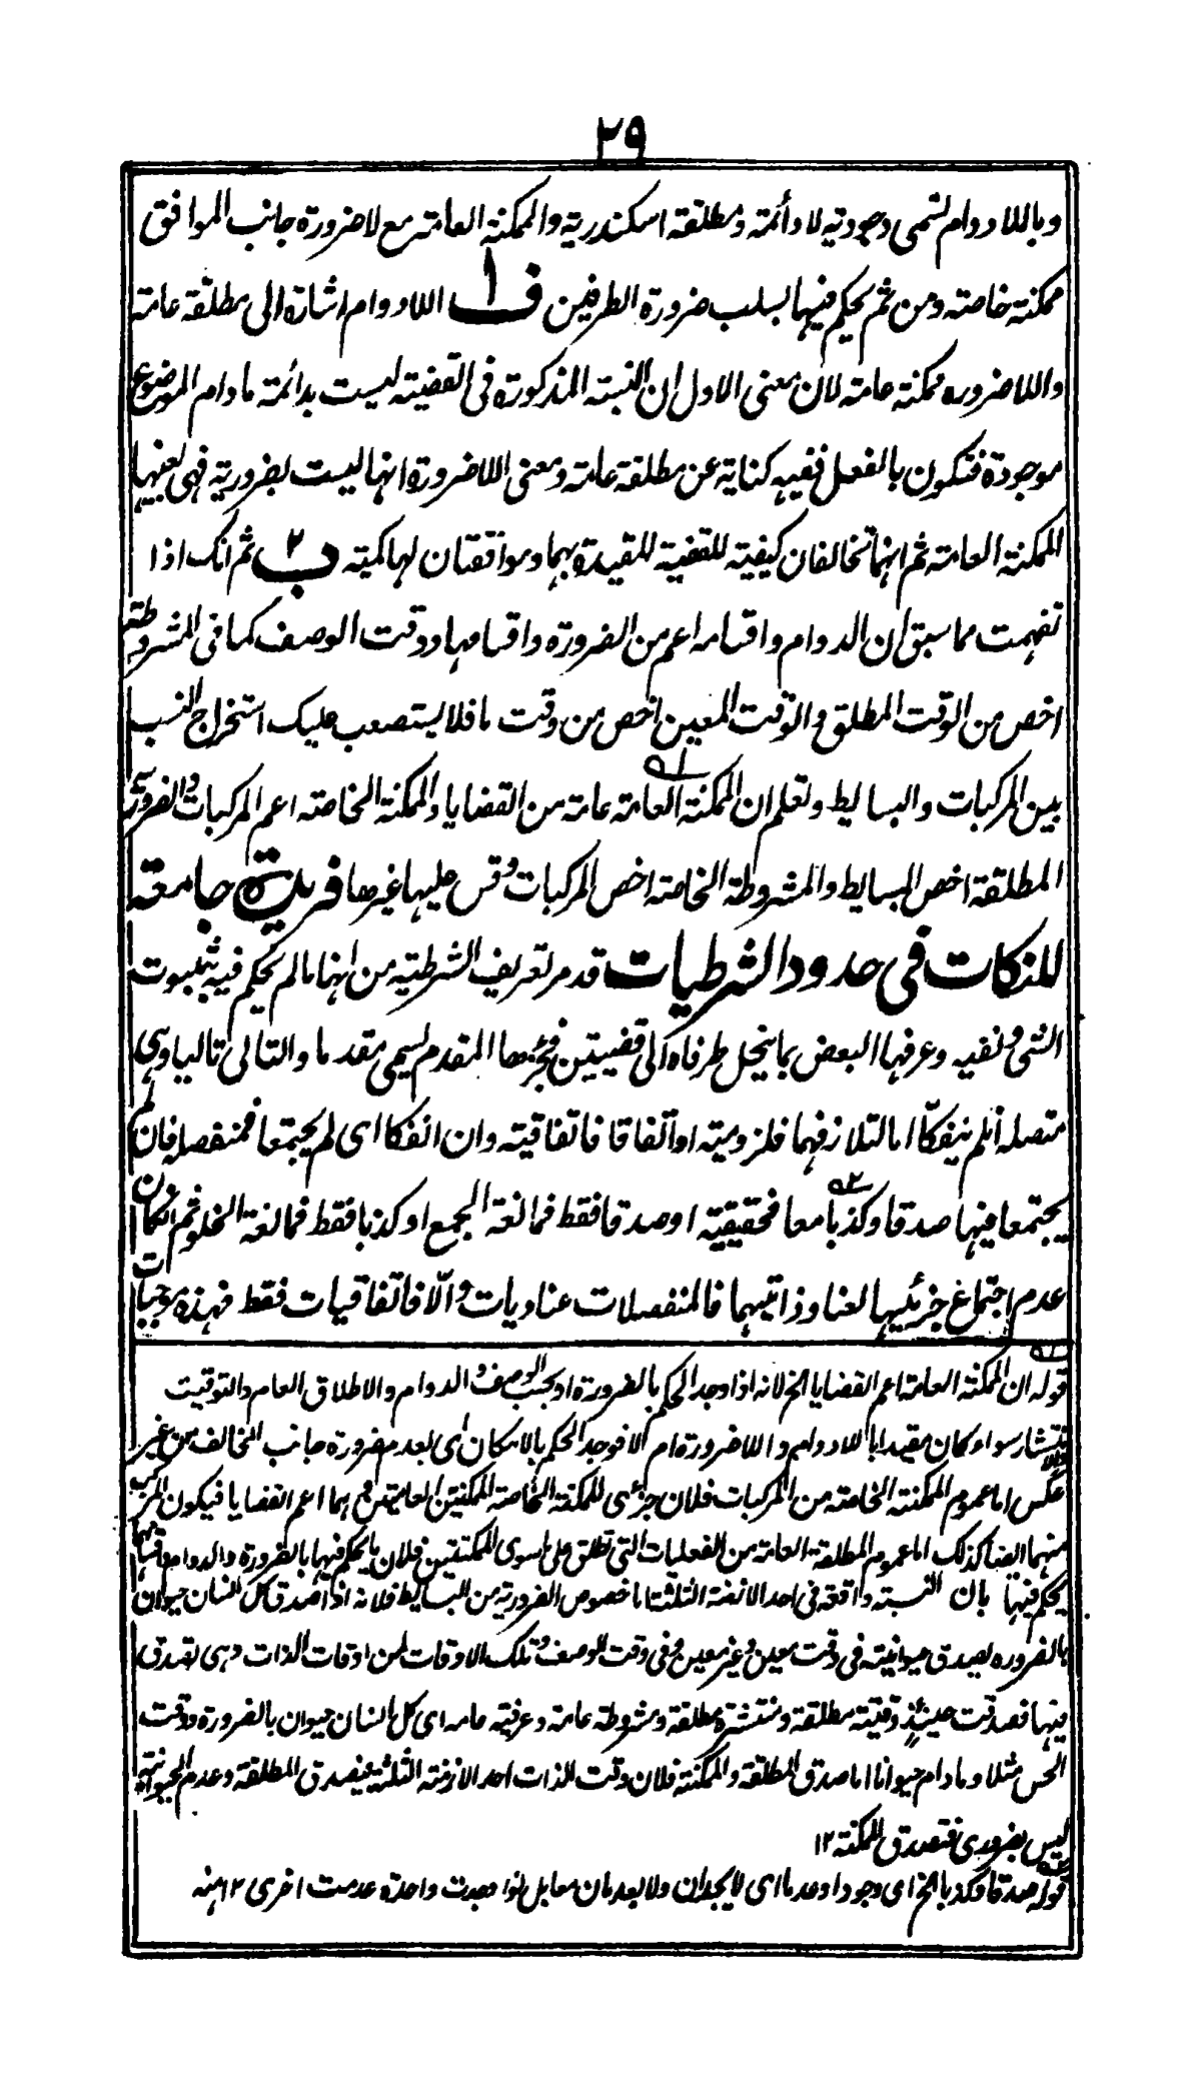 ٢٩
وباللادوام تسمى وجودية لا دائمة ومطلقة اسكندرية والممكنة العامة مع لا ضرورة جانب الموافق
ممكنة خاصة ومن ثم يحكم فيها بسلب ضرورة الطرفين ف ١ اللادوام اشارة الى مطلقة عامة
واللاضرورة ممكنة عامة لان معنى الاول ان النسبة المذكورة فى القضية ليست بدائمة مادام الموضوع
موجودة فتكون بالفعل ففيه كناية عن مطلقة عامة ومعنى اللاضرورة انها ليست بضرورية فهى بعينها
الممكنة العامة ثم انهما تخالفان كيفية للقضية المقيدة بهما وموافقتان لها كمية ب ٢ ثم انك اذا
تفهمت مما سبق ان الدوام واقسامه اعم من الضرورة واقسامها ووقت الوصف كما فى المشروطة
اخص من الوقت المطلق والوقت المعين اخص من وقت ما فلا يستصعب عليك استخراج النسب
بين المركبات والبسايط وتعلم ان الممكنة العامة عامة من القضايا والممكنة الخاصة اعم المركبات والضرورية
المطلقة اخص البسايط والمشروطة الخاصة اخص المركبات وقس عليها غيرها فريدة جامعة
للنكات فى حدود الشرطيات قد مر تعريف الشرطية من انها ما لم يحكم فيه بثبوت
الشى ونفيه وعرفها البعض بما ينحل طرفاه الى قضيتين فجزءها المقدم يسمى مقدما والتالى تاليا وهى
متصلة ان لم ينفكّا اما لتلازمهما فلزومية او اتفاقا فاتفاقية وان انفكا اى لم يجتمعا فمنفصلة فان لم
يجتمعا فيها صدقا وكذبا معا فحقيقية او صدقا فقط فمانعة الجمع او كذبا فقط فمانعة الخلو ثم ان كان
عدم اجتماع جزئيها لعناد ذاتيهما فالمنفصلات عناديات والّا فاتفاقيات فقط فهذه موجبات
قوله ان الممكنة العامة اعم القضايا الخ لانه اذا وجد الحكم بالضرورة او بحسب الوصف والدوام والاطلاق العام والتوقيت
والانتشار سواء كان مقيدا باللادوام واللاضرورة ام لا فوجد الحكم بالامكان اى بعدم ضرورة جانب المخالف من غير
عكس اما عموم الممكنة الخاصة من المركبات فلان جزئى الممكنة الخاصة الممكنتين العامتين هما اعم القضايا فيكون المركب
منهما ايضا كذلك اما عموم المطلقة العامة من الفعليات التى تطلق على سوى الممكنتين فلان ما يحكم فيها بالضرورة والدوام
يحكم فيها بان النسبة واقعة فى احد الازمنة الثلثة اما خصوص الضرورية من البسايط فلانه اذا صدق كل انسان حيوان
بالضرورة يصدق حيوانيته فى وقت معين وغير معين وفى وقت الوصف وتلك الاوقات من اوقات الذات وهى تصدق
فيها فصدقت حينئذ وقتية مطلقة ومنتشرة مطلقة ومشروطة عامة وعرفية عامه اى كل انسان حيوان بالضرورة وقت
الحس مثلا وما دام حيوانا اما صدق المطلقة والممكنة فلان وقت الذات احد الازمنة الثلثة فيصدق المطلقة وعدم الحيوانية
ليس بضرورى فتصدق الممكنة ١٢
قوله صدقا وكذبا الخ اى وجودا وعدما اى لا يجدان ولا يعدمان معا بل اذا وجدت واحدة عدمت اخرى ١٢ منه